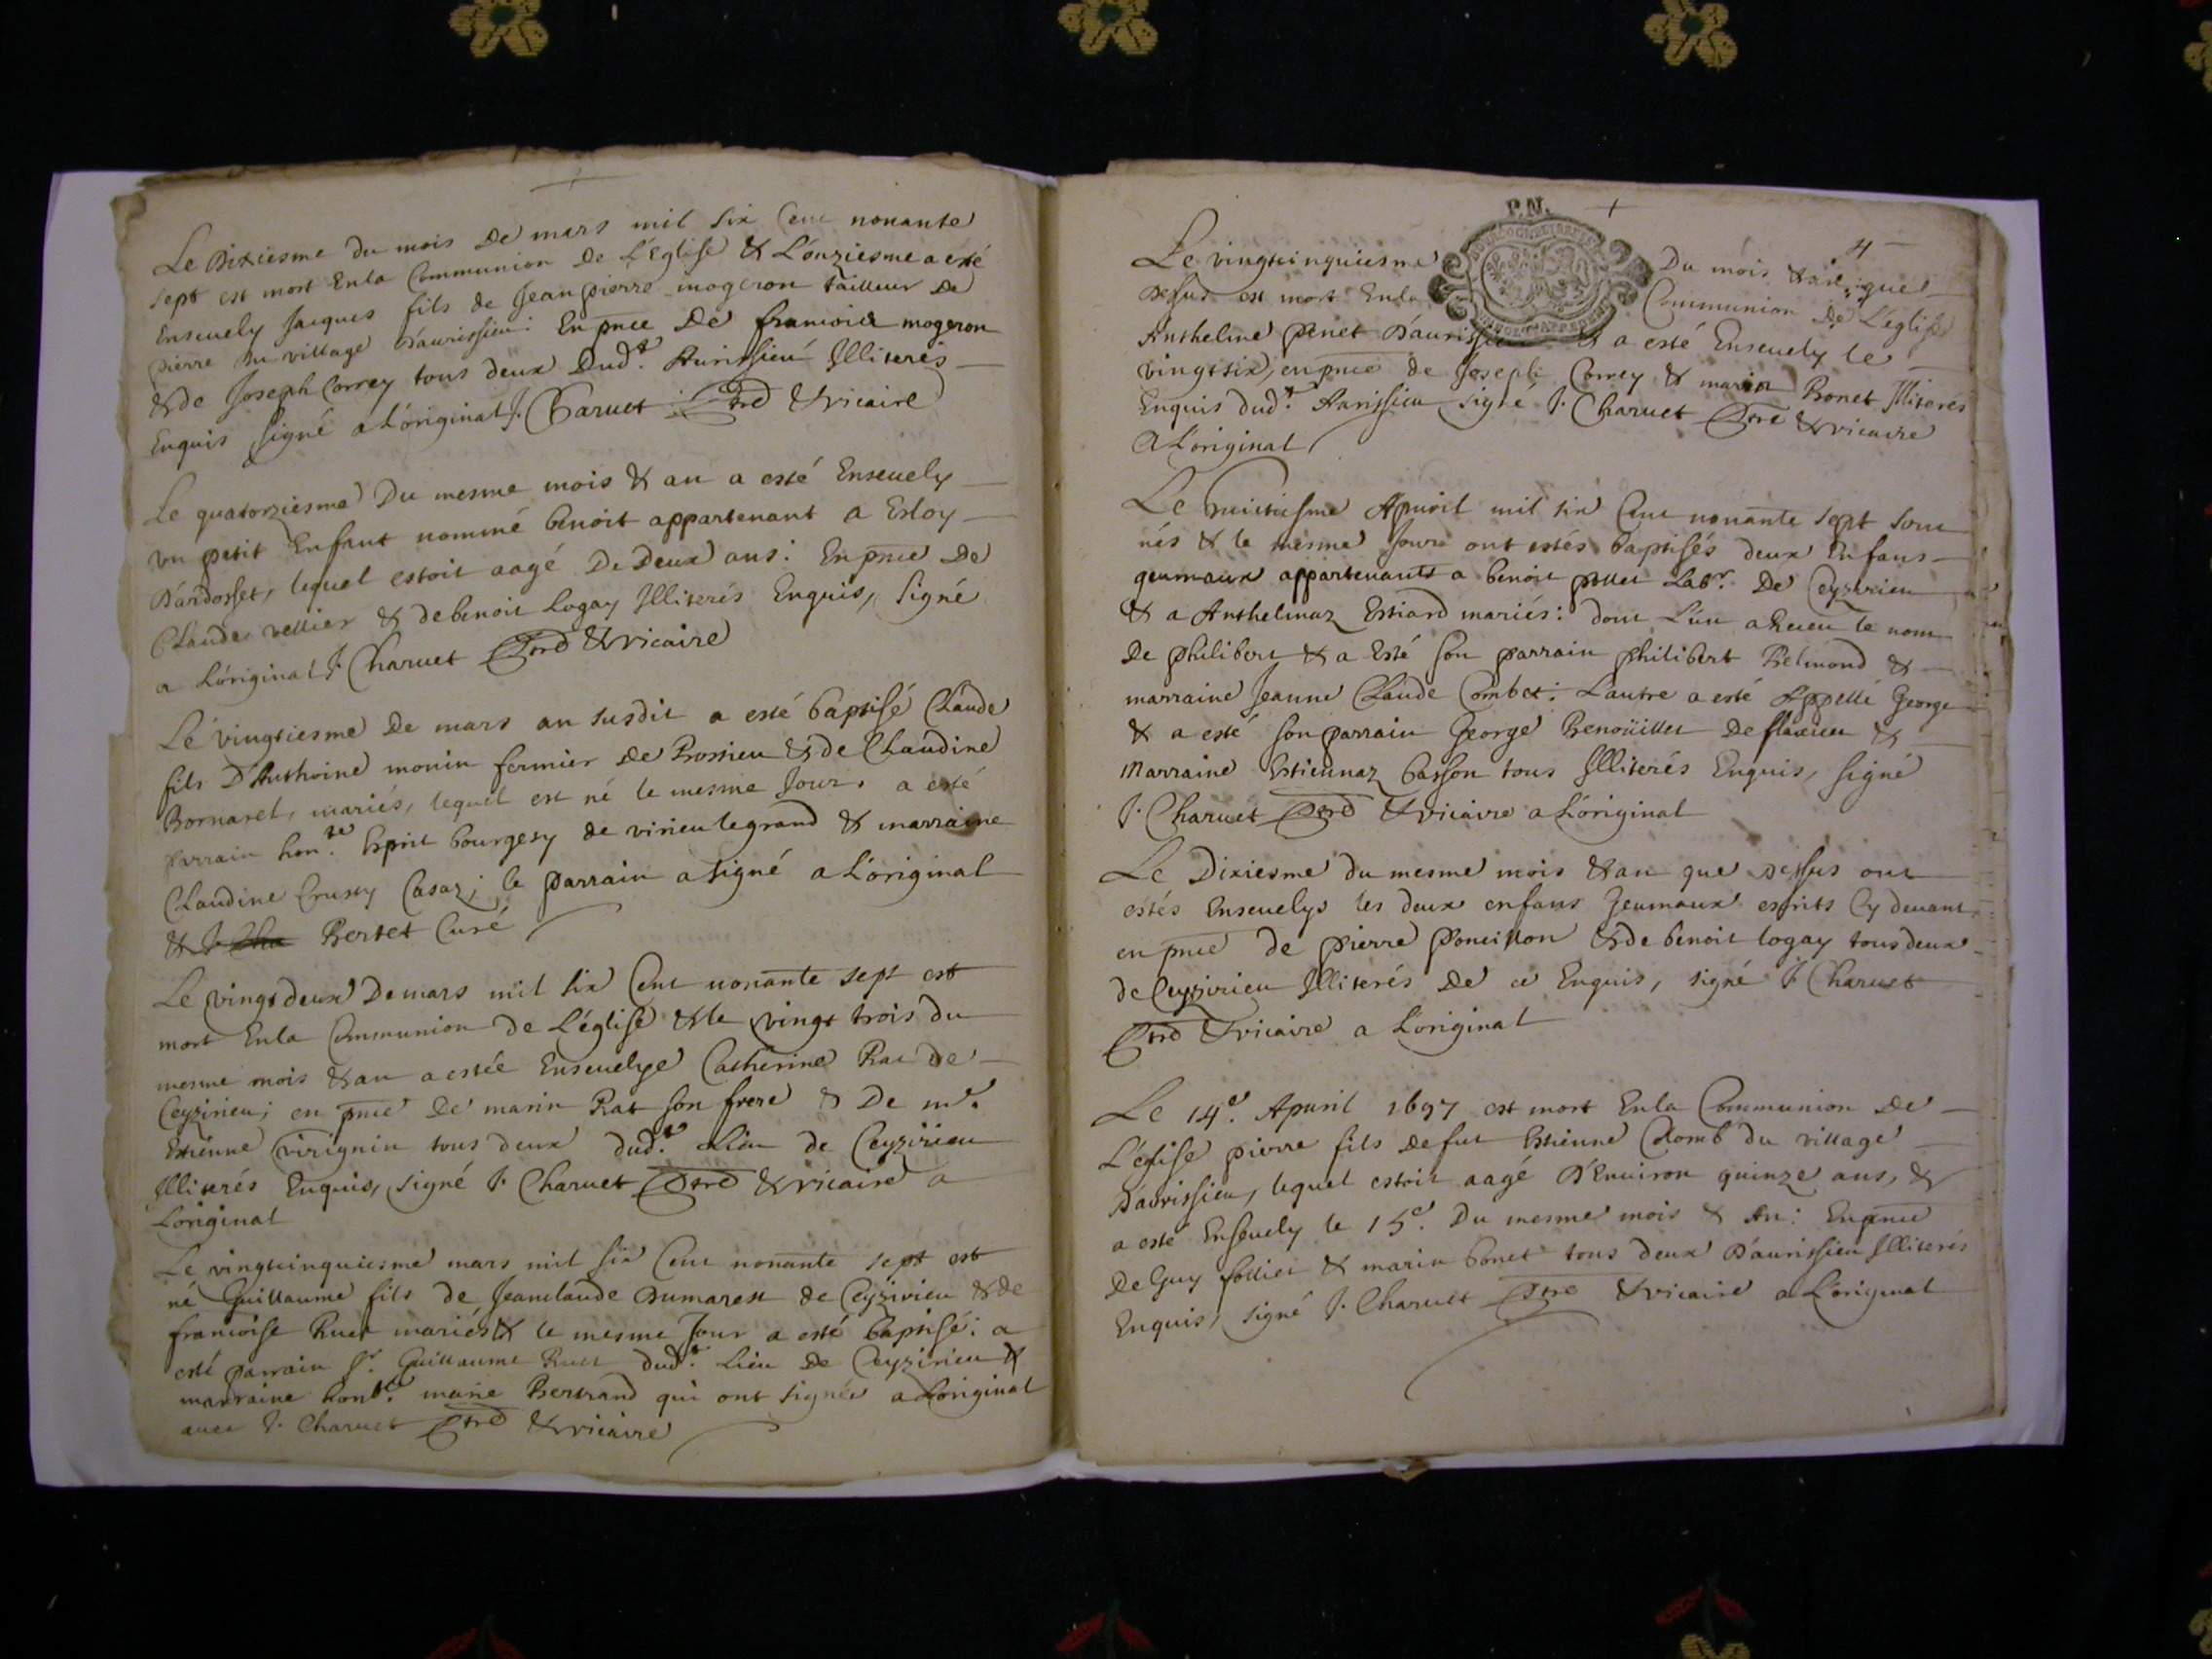 Le Dixiesme du mois De mars mil six Cent nonante
sept est mort Enla Communion De L'Eglise & L'onziesme a esté
Enseuely Jacques fils de Jean pierre mogeron tailleur De
pierre du village D'aurissieu: En pnce De francois mogeron
& de Joseph Correy tous deux Dudt Aurissieu Illiterés
Enquis signé a L'original J. Charuet Ptre & vicaire
Le quatorziesme Du mesme mois & an a esté Enseuely
vn petit Enfant nommé benoit appartenant a Esloy
D'ardosset, lequel estoit aagé De Deux ans: En pnce De
Claude vellier & de benoit Logay Illiterés Enquis, signé
a L'original J. Charuet Ptre & vicaire
Le vingtiesme De mars an susdit a esté baptisé Claude
fils D'Anthoine monin fermier de Rossieu & de Claudine
Bornaret, mariés, lequel est né le mesme Jour. a esté
parrain hon.le Esprit bourgesy de virieu le grand & marraine
Claudine Crussy Casaz; le parrain a signé a L'original
& J. Cha Bertet Curé
Le vingt deux De mars mil six Cent nonante sept est
mort Enla Communion de L'église & le vingt trois du
mesme mois & an a estée Enseuelye Catherine Rat de
Ceyzirieu; en pnce De marin Rat son frere & De me.
Estienne virignin tous deux dudt Lieu de Ceyzirieu
Illiterés Enquis, signé J. Charuet Ptre & vicaire a
L'original
Le vingtcinquiesme mars mil six Cent nonante sept est
né Guillaume fils de Jeanclaude Dumarest de Ceyzirieu & de
francoise Ruet mariés & le mesme Jour a esté baptisé: a
esté parrain Sr. Guillaume Ruet dudt. Lieu De Ceyzirieu &
marraine honble. marie Bertrand qui ont signés a L'original
auec J. Charuet Ptre & vicaire
P.N.
4
Le vingtcinquiesme Du mois & an que
dessus est mort Enla Communion De L'église
Antheline penet D'aurissieu & a esté Enseuely le
vingtsix, en pnce de Joseph Correy & marin Bonet Illiterés
Enquis dudt. Aurissieu signé J. Charuet Ptre & vicaire
a L'original
Le huictiesme Apuril mil six Cent nonante sept sont
nés & le mesme Jour ont estés baptisés deux Enfans
geumaux appartenants a benoit pollet Labr. De Ceyzirieu
& a Anthelmaz Estiard mariés: dont L'un a Receu le nom
De philibert & a Esté son parrain philibert Belmond &
marraine Jeanne Claude Combet: L'autre a esté Appellé George
& a esté son parrain George Benoüillet De flaxieu &
Marraine Estiennaz basson tous Illiterés Enquis, signé
J. Charuet Ptre & vicaire a L'original
Le Dixiesme du mesme mois & an que dessus ont
estés Enseuelys les deux enfans Jeumaux escrits Cy deuant
en pnce de pierre poncillon & de benoit logay tous deux
de Ceyzirieu Illiterés De ce Enquis, signé J Charuet
Ptre & vicaire a L'original
Le 14e. Apuril 1697 est mort Enla Communion De
L'église pierre fils de fut Estienne Colomb du village
D'aurissieu, lequel estoit aagé D'Enuiron quinze ans, &
a esté Enseuely le 15e. Du mesme mois & An: En pnce
De Guy follier & marin bonet tous deux D'aurissieu Illiterés
Enquis, signé J. Charuet Ptre & vicaire a L'original